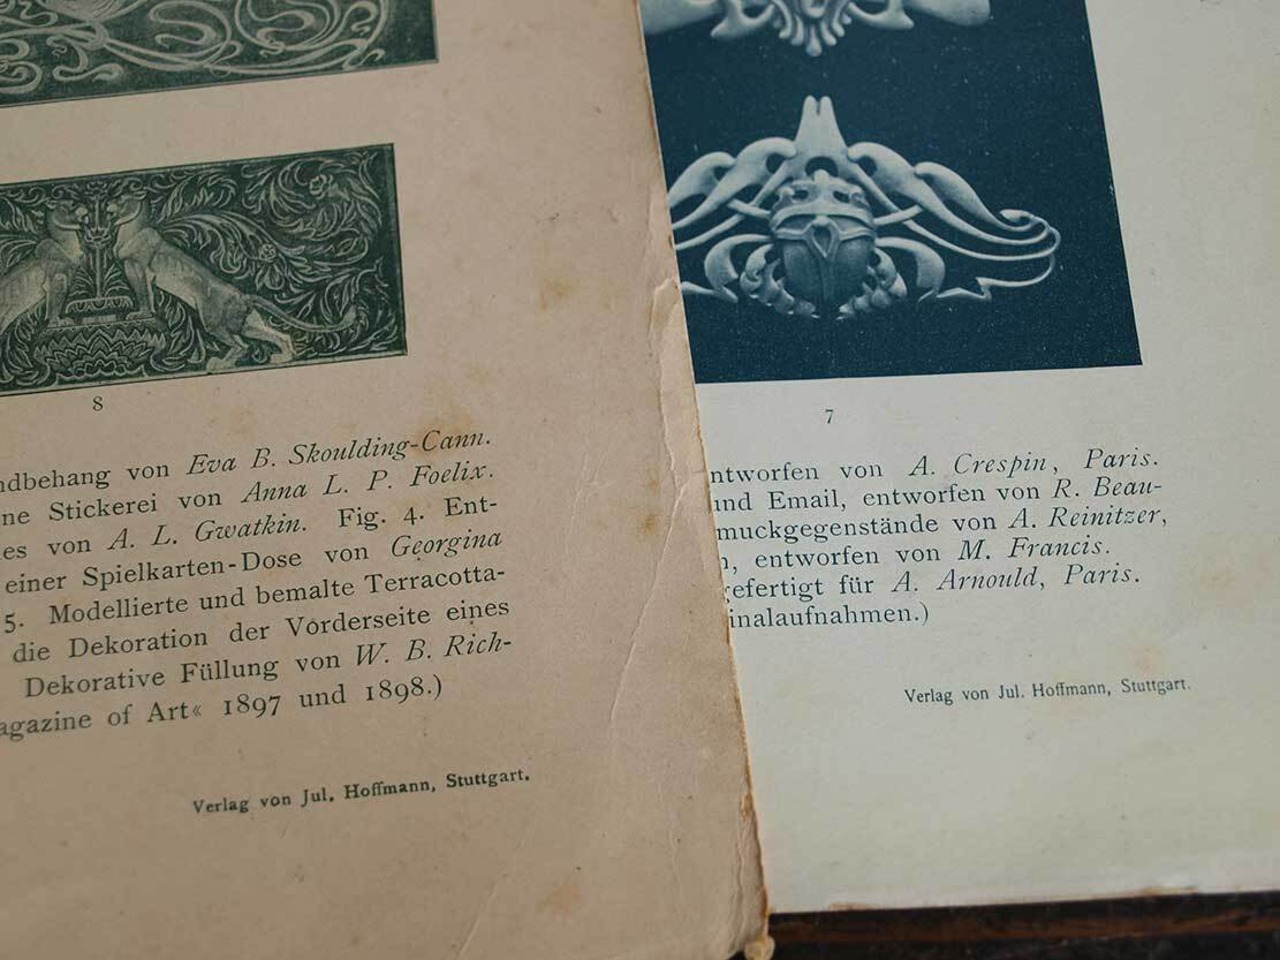 8
ndbehang von Eva B. Skoulding-Cann.
ne Stickerei von Anna L. P. Foelix.
es von A. L. Gwatkin. Fig. 4. Ent-
einer Spielkarten-Dose von Georgina
5. Modellierte und bemalte Terracotta-
die Dekoration der Vorderseite eines
Dekorative Füllung von W. B. Rich-
agazine of Art« 1897 und 1898.)
Verlag von Jul. Hoffmann, Stuttgart.
7
ntworfen von A. Crespin, Paris.
und Email, entworfen von R. Beau-
muckgegenstände von A. Reinitzer,
n, entworfen von M. Francis.
gefertigt für A. Arnould, Paris.
inalaufnahmen.)
Verlag von Jul. Hoffmann, Stuttgart.